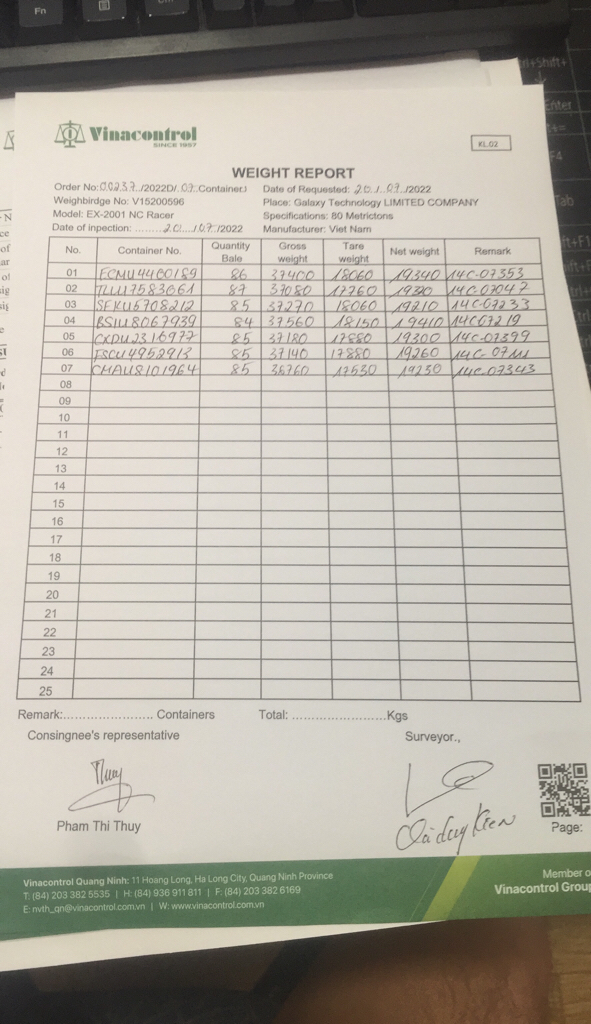 Vinacontrol
SINCE 1957
KL.02
WEIGHT REPORT
Order No: 00237 /2022D/.07.Container} Date of Requested: 20./.07../2022
Weighbirdge No: V15200596 Place: Galaxy Technology LIMITED COMPANY
Model: EX-2001 NC Racer Specifications: 80 Metrictons
Date of inpection: ........20..../07./2022 Manufacturer: Viet Nam
No. Container No. Quantity Bale Gross weight Tare weight Net weight Remark
01 86 37400 18060 19340 14C-07353
02 TLLU7583661 87 37080 17760 14C-07047
03 SEKU5708212 85 37270 18060 19210 14C-07233
04 BSIU8067939 84 37560 18150 19410 14C07219
05 CXDU2316977 85 37180 17880 19300 14C-07399
06 FSCU4952913 85 37140 17880 19260 14C-
07 CMAU8101964 85 36760 17530 19230 14C-07343
08
09
10
11
12
13
14
15
16
17
18
19
20
21
22
23
24
25
Remark:....................... Containers Total: ........................Kgs
Consingnee's representative Surveyor.,
Thuy
Pham Thi Thuy
Page:
Vinacontrol Quang Ninh: 11 Hoang Long, Ha Long City, Quang Ninh Province
T: (84) 203 382 5535 | H: (84) 936 911 811 | F: (84) 203 382 6169
E: nvth_qn@vinacontrol.com.vn | W: www.vinacontrol.com.vn
Member o
Vinacontrol Group
Fn
Enter
F4
Tab